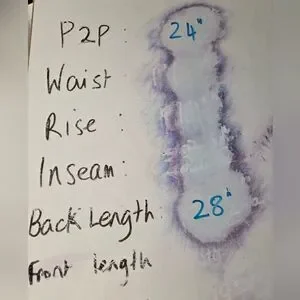 P2P : 24"
Waist
Rise :
Inseam :
Back Length : 28"
Front length